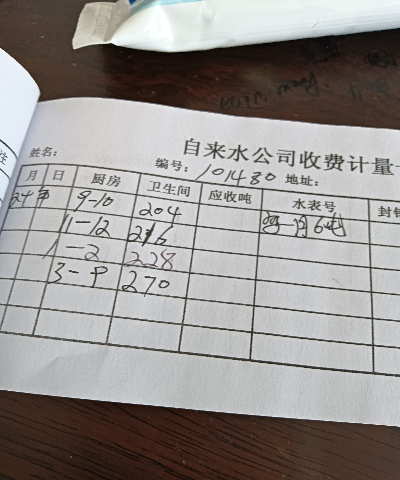 自来水公司收费计量
姓名： 编号：101480 地址：
月 日 厨房 卫生间 应收吨 水表号 封
24年 9-10 204
11-12 216
1-2 228
3-4 270